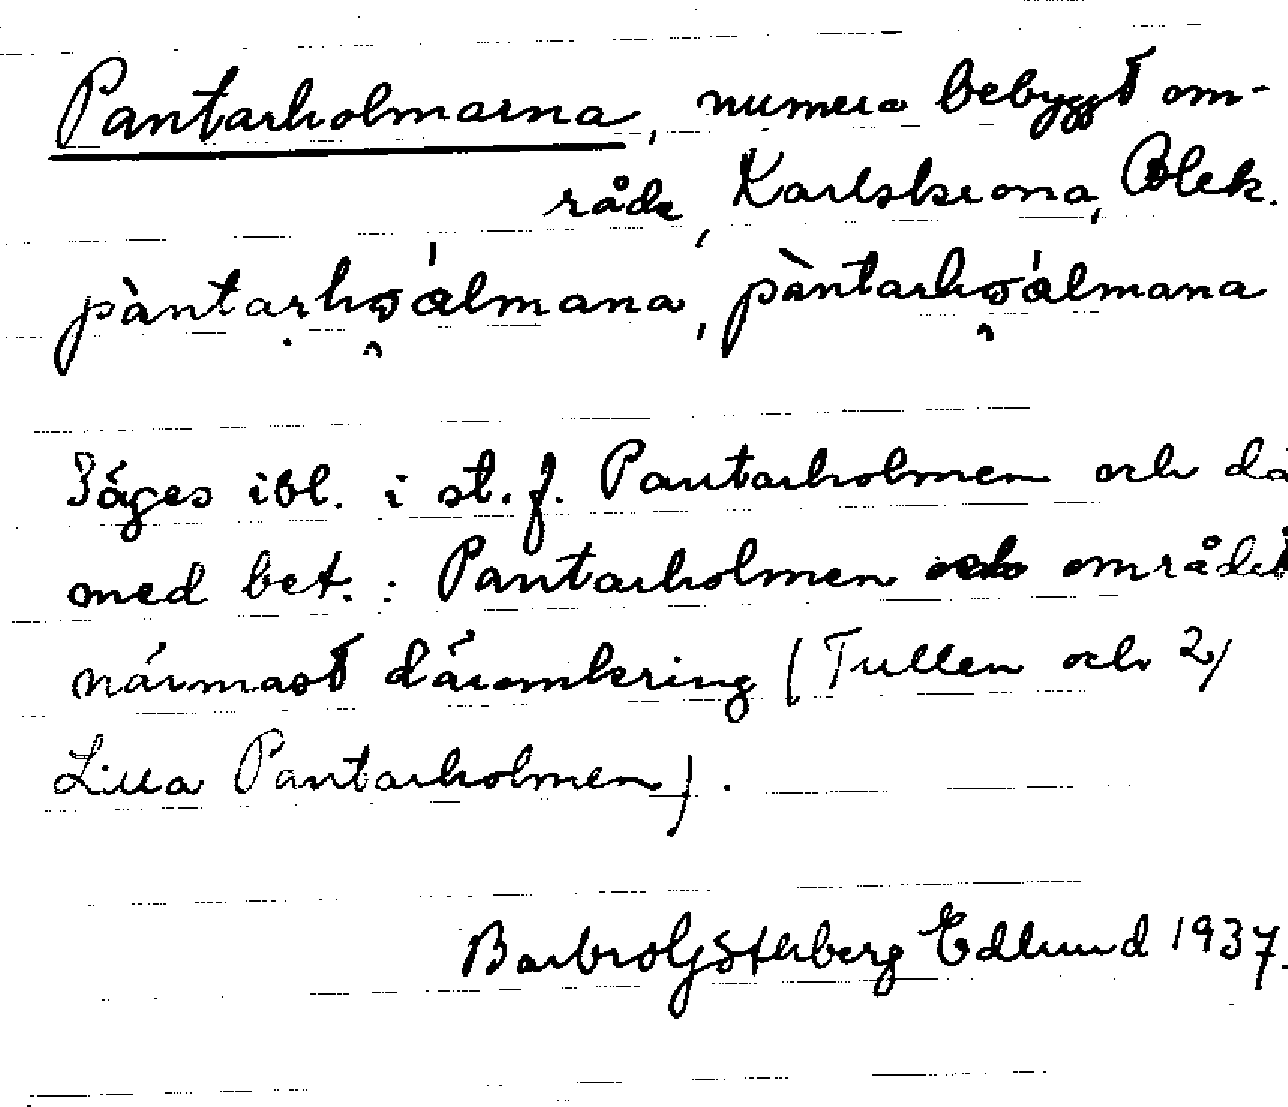 Pantarholmarna, numera bebyggt om-
råde, Karlskrona, Blek.
pàntarhoálmana, pàntarhoálmana
Säges ibl. i st. f. Pantarholmen och då
med bet.: Pantarholmen och området
närmast däromkring (Tullen och 2/
Lilla Pantarholmen).
Edlund 1937.